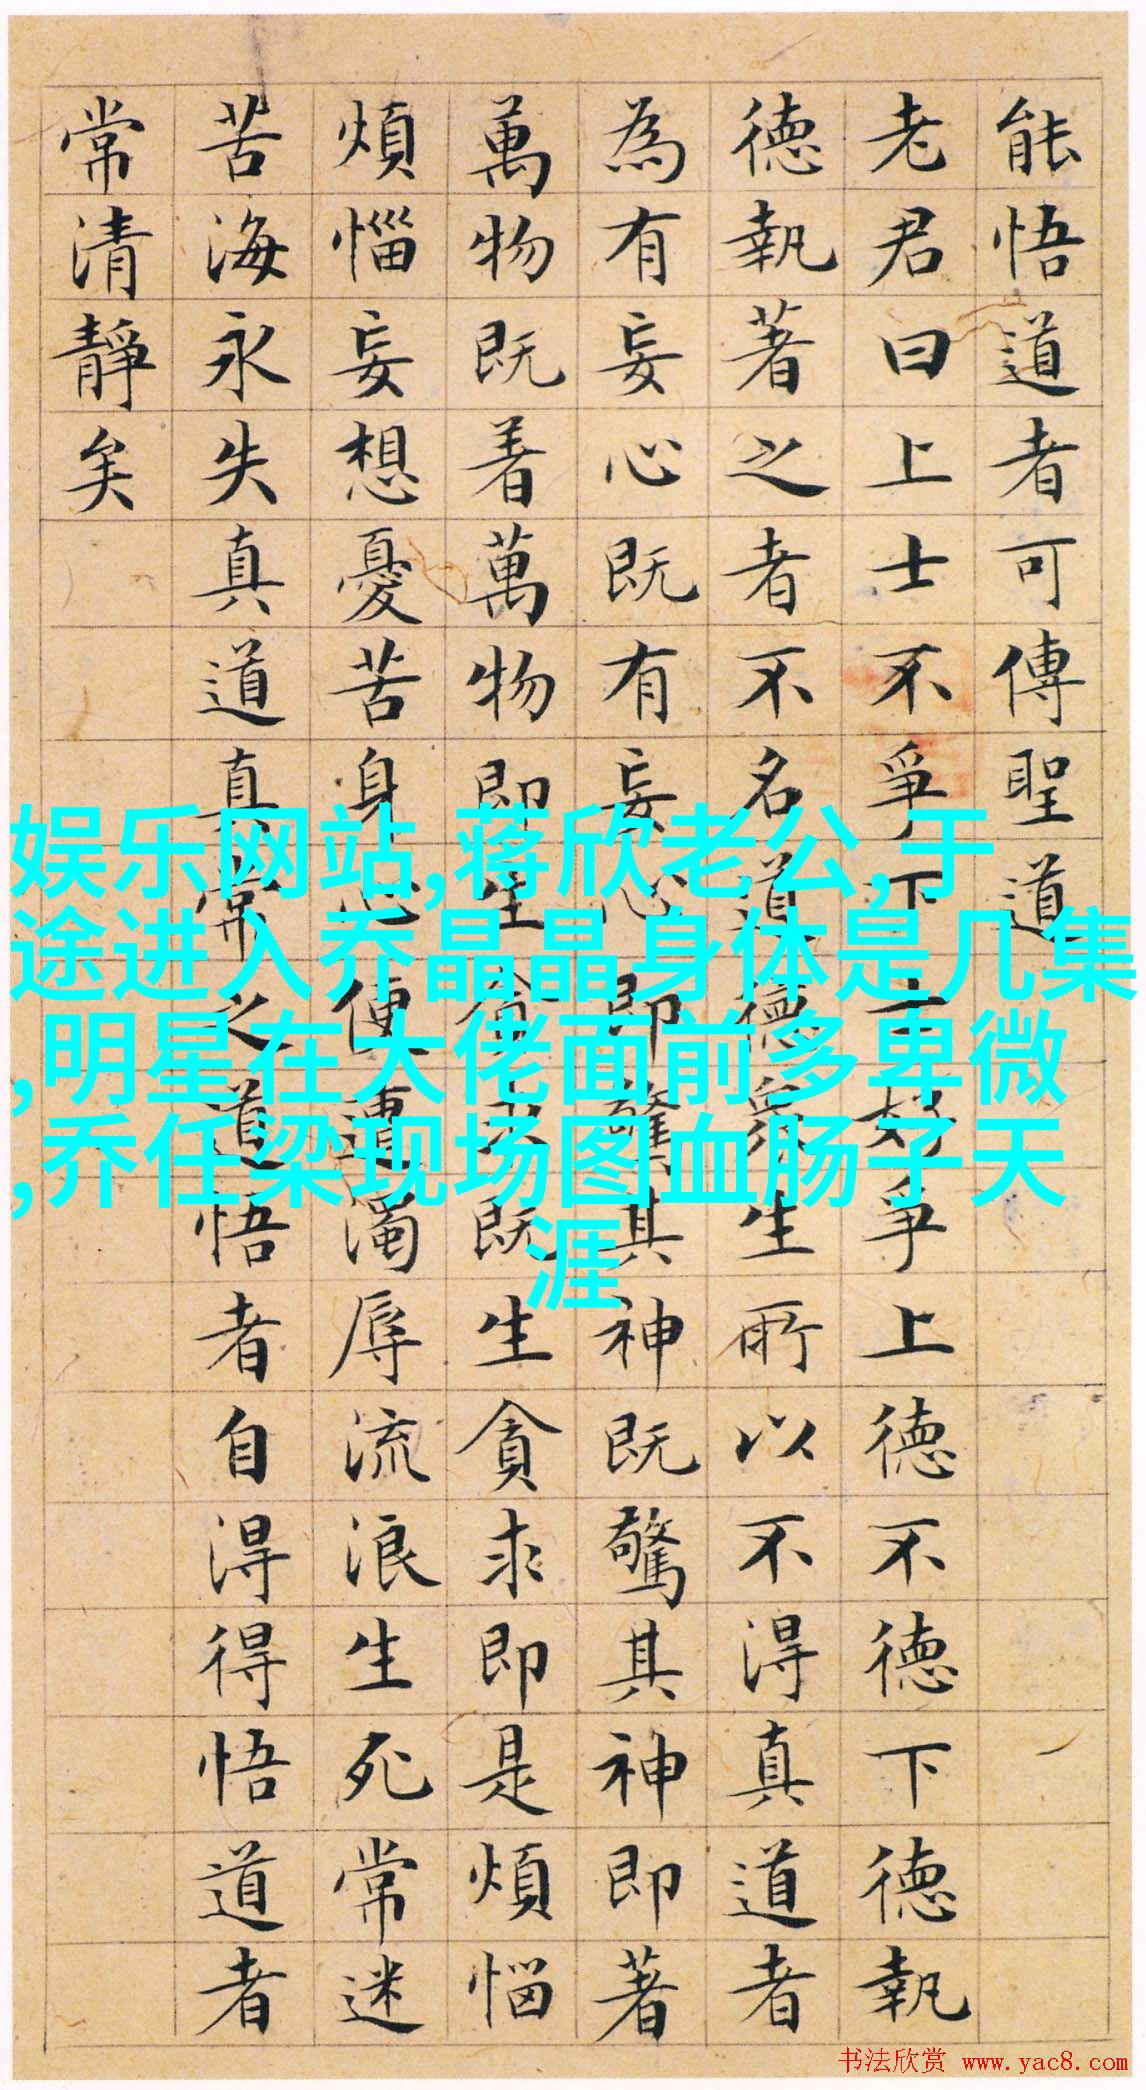 能悟道者可傳聖道
老君曰上士不爭下士好爭上德不德下德執
德執著之者不名道德衆生所以不得真道者
為有妄心既有妄心即驚其神既驚其神即著
萬物既着萬物即生貪求既生貪求即是煩惱
煩惱妄想憂苦身心便遭濁辱流浪生死常迷
苦海永失真道真常之道悟者自得得悟道者
常清靜矣
娱乐网站,蒋欣老公,于
途进入乔晶晶身体是几集
,明星在大佬面前多卑微
,乔任梁现场图血肠子天
涯
书法欣赏 www.yac8.com